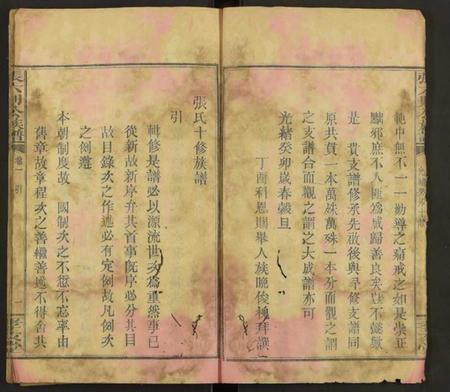 範中無不一一勸導之痛戒之如是崇正
黜邪庶不人歸善良矣豈不懿歟
是 貴支譜修承先啟後與尋修支譜同
原共貫一本萬殊萬殊一本分而觀之謂
之支譜合而觀之謂之大成譜亦可
光緒癸卯歲春穀旦
丁酉科恩賜舉人族晚俊極拜譔
張氏十修族譜
引
輯修是譜必以源流世次為重然事已
從新故新序弁其首事既序必分其目
故目錄次之作述必有定例故凡例次
之創遵
本朝制度故 國制次之不愆不忘率由
舊章故章程次之善繼善述不得舍其
張氏族譜
卷一 引
一